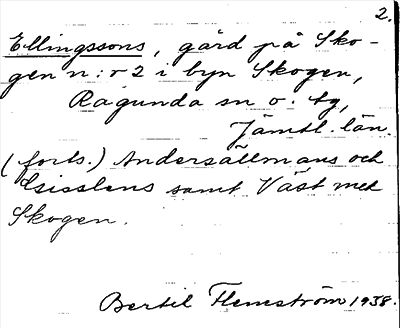 2.
Ellingssons, gård på Sko-
gen n:r 2 i byn Skogen,
Ragunda sn o. tg,
Jämtl. län.
(forts.) Andersällmans och
Gisslens samt Väst med
Skogen.
Bertil Flemström 1938.